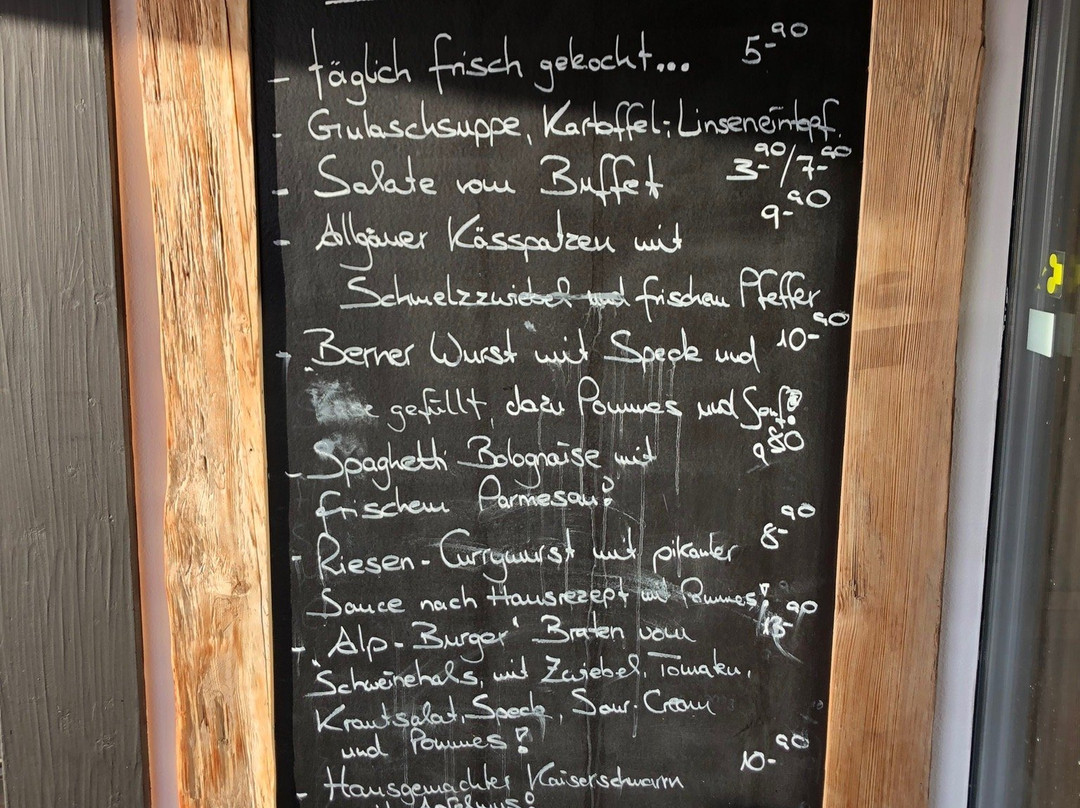 - täglich frisch gekocht... 5-90
- Gulaschsuppe, Kartoffel-; Linseneintopf.
- Salate vom Buffet 3-90/7-90
9-90
- Allgäuer Kässpatzen mit
Schmelzzwiebel und frischem Pfeffer
- Berner Wurst mit Speck und 10-90
gefüllt, dazu Pommes und Senf!
- Spaghetti Bolognaise mit 9 80
frischem Parmesan!
- Riesen-Currywurst mit pikanter 8-90
Sauce nach Hausrezept und Pommes!
- "Alp-Burger" Braten vom 13-90
Schweinehals, mit Zwiebel, Tomaten,
Krautsalat, Speck, Sour-Cream
und Pommes!
- Hausgemachter Kaiserschmarrn 10-90
Apfelmus!